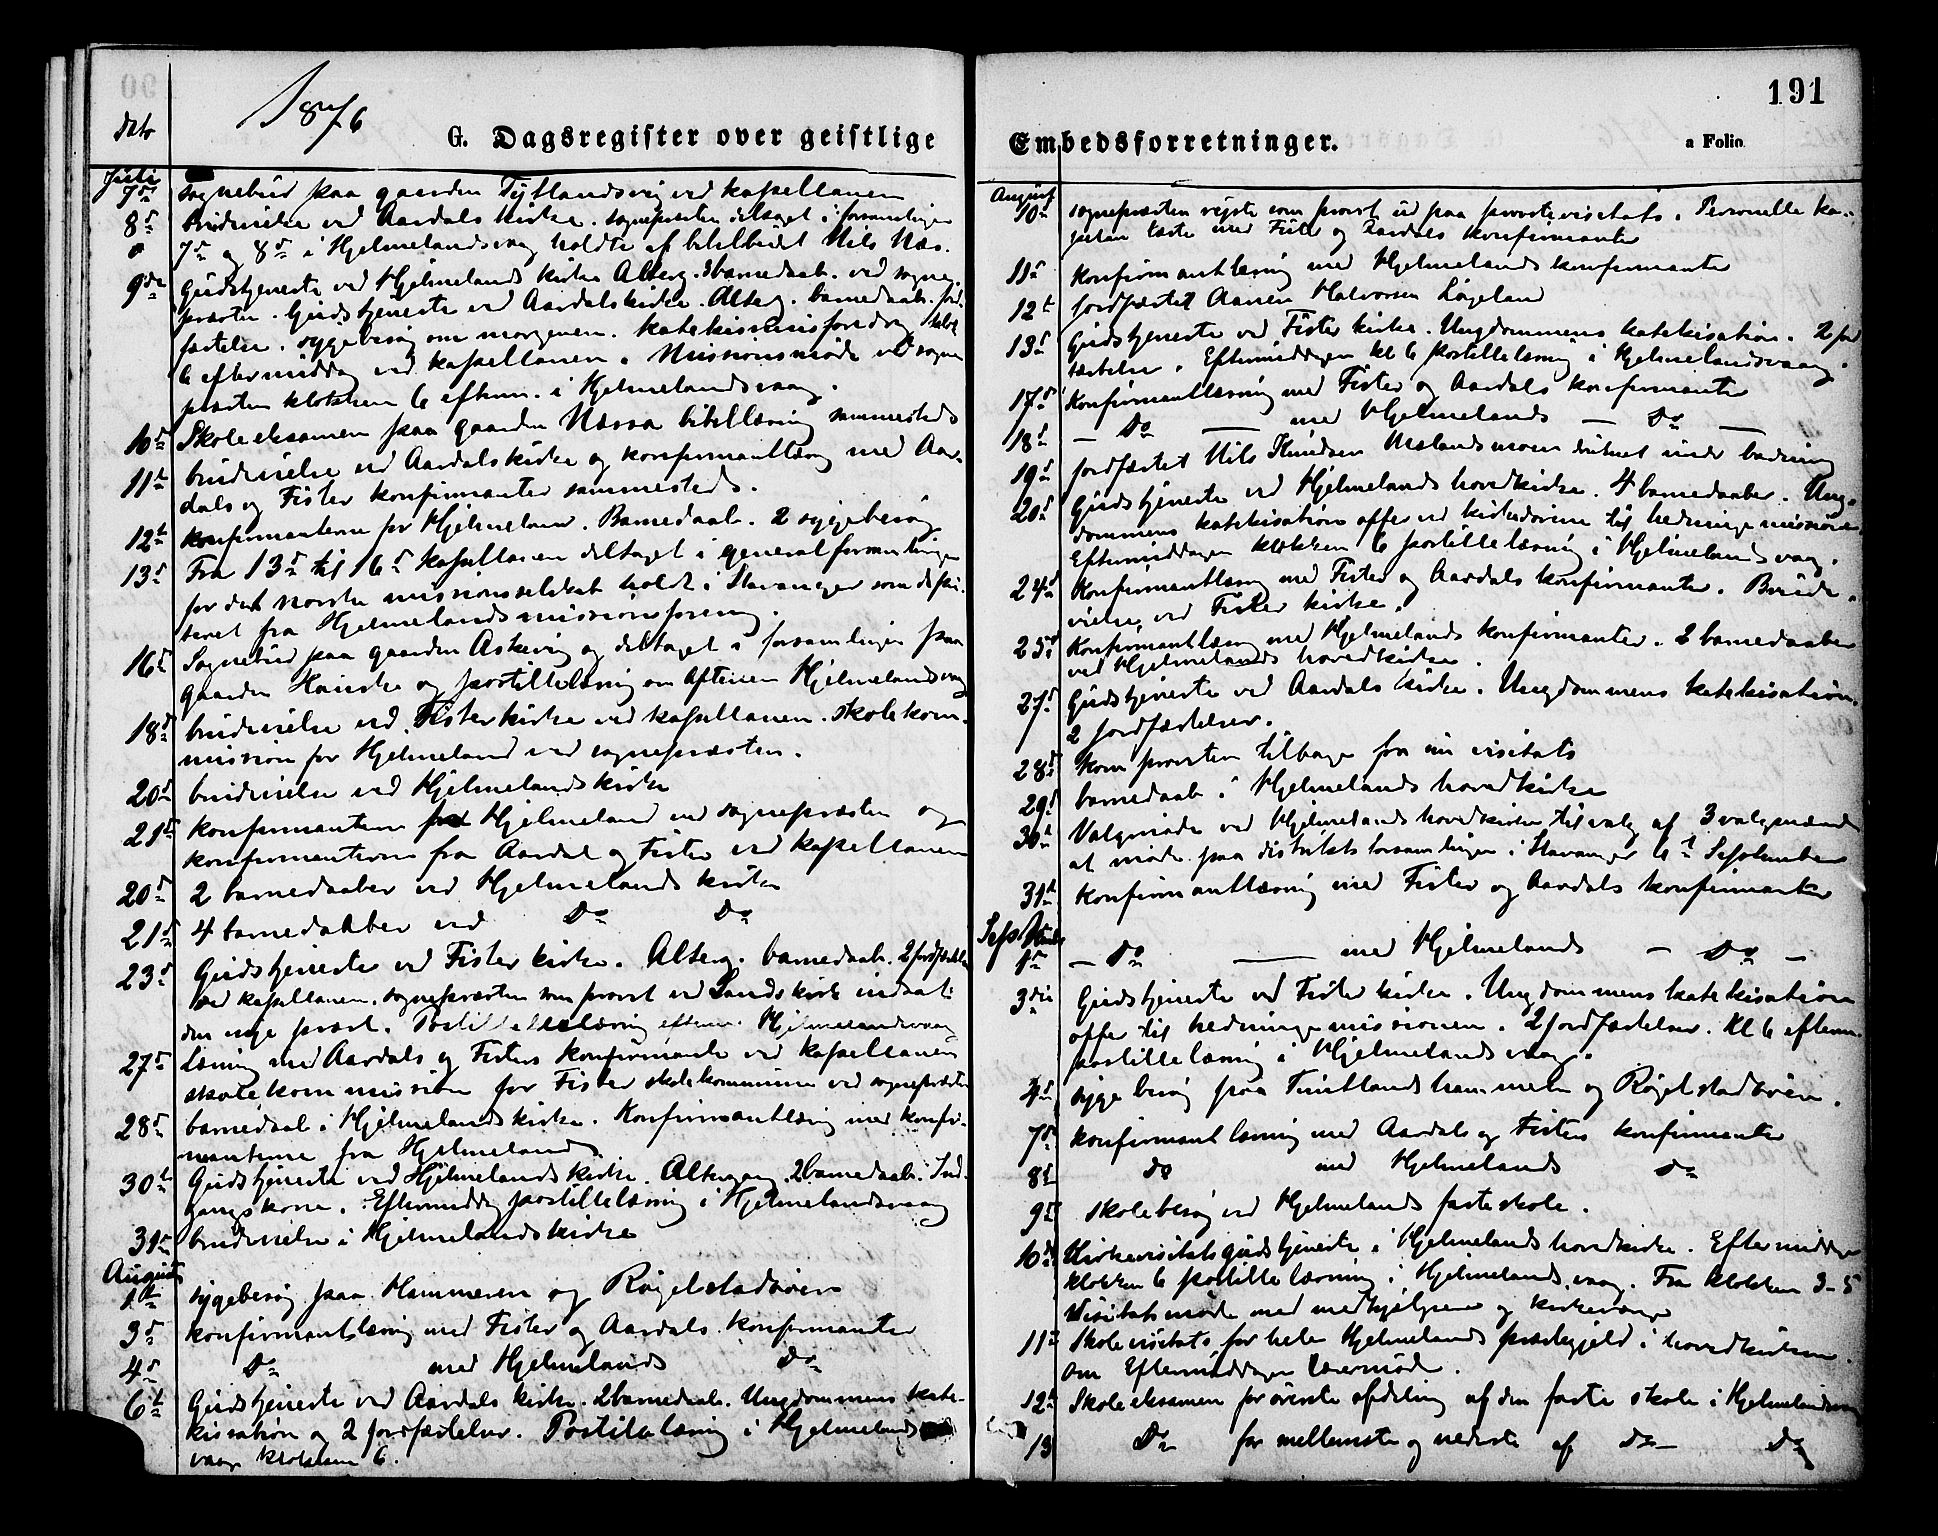 1876
Dato
G. Dagsregister over geistlige
Juli
7de sognebud paa gaarden Tytlandsvig ved kapellanen
8de Brudevielse ved Aardals kirke. sognepræsten deltaget i forsamlingen
7de og 8de i Hjelmelandsvaag holdte af bibelbudet Nils Næs.
9de Gudstjeneste ved Hjelmelands kirke Alterg. 3 barnedaab. ved sogne-
præsten. Gudstjeneste ved Aardals kirke. Alterg. barnedaab. jord-
fæstelse. sygebesøg om morgenen. Katekismusforedrag
6 eftermiddag ved kapellanen. Missionsmøde ved sogne
præsten klokken 6 efterm. i Hjelmelandsvaag.
10de Skoleeksamen paa gaarden Næssa bibellæsning sammesteds
11te brudevielse ved Aardals kirke og konfirmantlæsning med Aar-
dals og Fister konfirmanter sammesteds.
12te konfirmanterne for Hjelmeland. Barnedaab. 2 sygebesøg
13de Fra 13de til 16de kapellanen deltaget i generalforsamlingen
for det norske missionsselskab holdt i Stavanger som depu-
teret fra Hjelmelands missionsforening.
16de Sognebud paa gaarden Askevig og deltaget i forsamlingen paa
gaarden Hauske og postillelæsning om Aftenen Hjelmelandsvaag
18de brudevielse ved Fister kirke ved kapellanen. skolekom-
mission for Hjelmeland ved sognepræsten.
20de brudevielse ved Hjelmelands kirke
21de konfirmanterne fra Hjelmeland ved sognepræsten og
konfirmanterne fra Aardal og Fister ved kapellanen
20de 2 barnedaaber ved Hjelmelands kirke
21de 4 barnedaaber ved Do Do
23de Gudstjeneste ved Fister kirke. Alterg. barnedaab. 2 jordfæstelser
ved kapellanen. sognepræsten som provst ved Sands kirke indsat
den nye præst. Postillelæsning efterm. Hjelmelandsvaag
27de læsning med Aardals og Fisters konfirmanter ved kapellanen
skolekommission for Fister skolekommune ved sognepræsten
28de barnedaab i Hjelmelands kirke. Konfirmantlæsning med konfir-
manterne fra Hjelmeland
30te Gudstjeneste ved Hjelmelands kirke. Altergang. 2 barnedaab. Ind-
gangskone. Eftermiddag postillelæsning i Hjelmelandsvaag
31te brudevielse i Hjelmelands kirke
August
1ste sygebesøg paa Hammeren og Røgelstadøien
3de konfirmantlæsning med Fister og Aardals konfirmanter
4de Do med Hjelmelands Do
6te Gudstjeneste ved Aardals kirke. 2 barnedaab. Ungdommens kate-
kisation og 2 jordfæstelser. Postillelæsning i Hjelmelands
vaag klokken 6.
191
Embedsforretninger.
a Folio
August
10de sognepræsten rejste som provst ud paa provstevisitats. Personelle ka-
pelan læste med Fister og Aardals konfirmanter
11te konfirmantlæsning med Hjelmelands konfirmanter
12te jordfæstet Aanen Halvorsen Løgeland
13de Gudstjeneste ved Fister kirke. Ungdommens katekisation. 2 jord
fæstelser. Eftermiddagen kl 6 postillelæsning i Hjelmelandsvaag.
17de konfirmantlæsning med Fister og Aardals konfirmanter
18de – Do – med Hjelmelands – Do –
19de jordfæstet Nils Knudsen Mælandsmoen druknet under badning
20de Gudstjeneste ved Hjelmelands hovedkirke. 4 barnedaaber. Ung-
dommens katekisation offer ved kirkedørene til hedningemissionen
Eftermiddagen klokken 6 postillelæsning i Hjelmelandsvaag.
24de konfirmantlæsning med Fister og Aardals konfirmanter. Brude-
vielse ved Fister kirke.
25de Konfirmantlæsning med Hjelmelands konfirmanter. 2 barnedaaber
ved Hjelmelands hovedkirke.
27de Gudstjeneste ved Aardals kirke. Ungdommens katekisation.
2 jordfæstelser.
28de kom provsten tilbage fra sin visitats
29de barnedaab i Hjelmelands hovedkirke
30te Valgmøde ved Hjelmelands hovedkirke til valg af 3 valgmænd
at møde paa distriktsforsamlingen i Stavanger 6te September
31te konfirmantlæsning med Fister og Aardals konfirmanter
September
1ste – Do – med Hjelmelands – Do –
3die Gudstjeneste ved Fister kirke. Ungdommens katekisation
offer til hedningemissionen. 2 jordfæstelser. Kl 6 efterm.
postillelæsning i Hjelmelandsvaag.
4de sygebesøg paa hammeren og Røgelstadøien.
7de konfirmantlæsning med Aardals og Fisters konfirmanter
8de Do med Hjelmelands Do
9de skolebesøg ved Hjelmelands faste skole.
10de Kirkevisitatsgudstjeneste i Hjelmelands hovedkirke. Eftermiddag
klokken 6 postillelæsning i Hjelmelandsvaag. Fra klokken 3–5
Visitatsmøde med medhjælpere og kirkeværge
11te Skolevisitats for hele Hjelmelands præstegjeld i hovedkirken.
om Eftermiddagen Lærermøde.
12te Skoleeksamen for øverste afdeling af den faste skole i Hjelmelandsvaag
13 Do for mellemste og nederste af Do Do